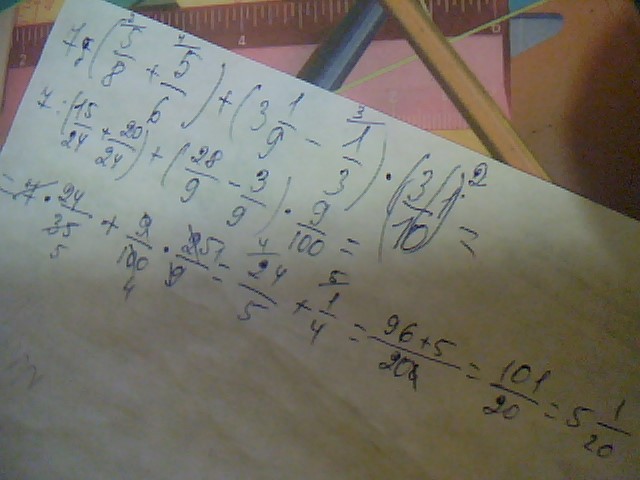 7 : (3/5/8 + 4/5/6) + (3 1/9 - 3/1/3) · (3/10)² =
7 : (15/24 + 20/24) + (28/9 - 3/9) · 9/100 =
= 7 · 24/35 5 + 9/100 4 · 25/9 = 4/24/5 + 5/1/4 = 96+5/20 = 101/20 = 5 1/20